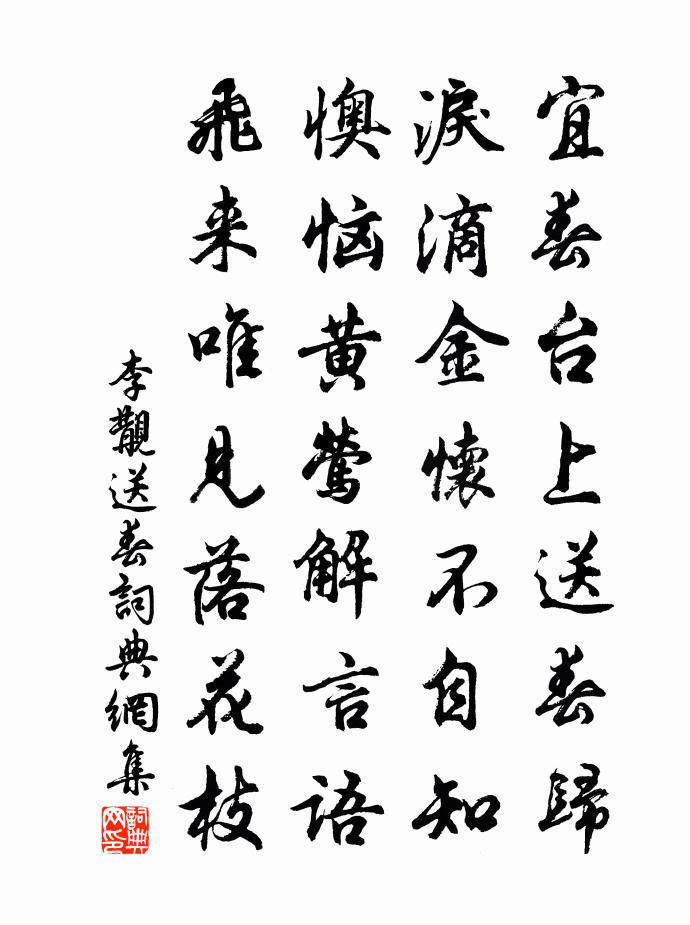 宜春台上送春歸
淚滴金懷不自知
懊恼黄鶯解言語
飛来唯見落花枝
李觏送春詞典網集
詞典网印